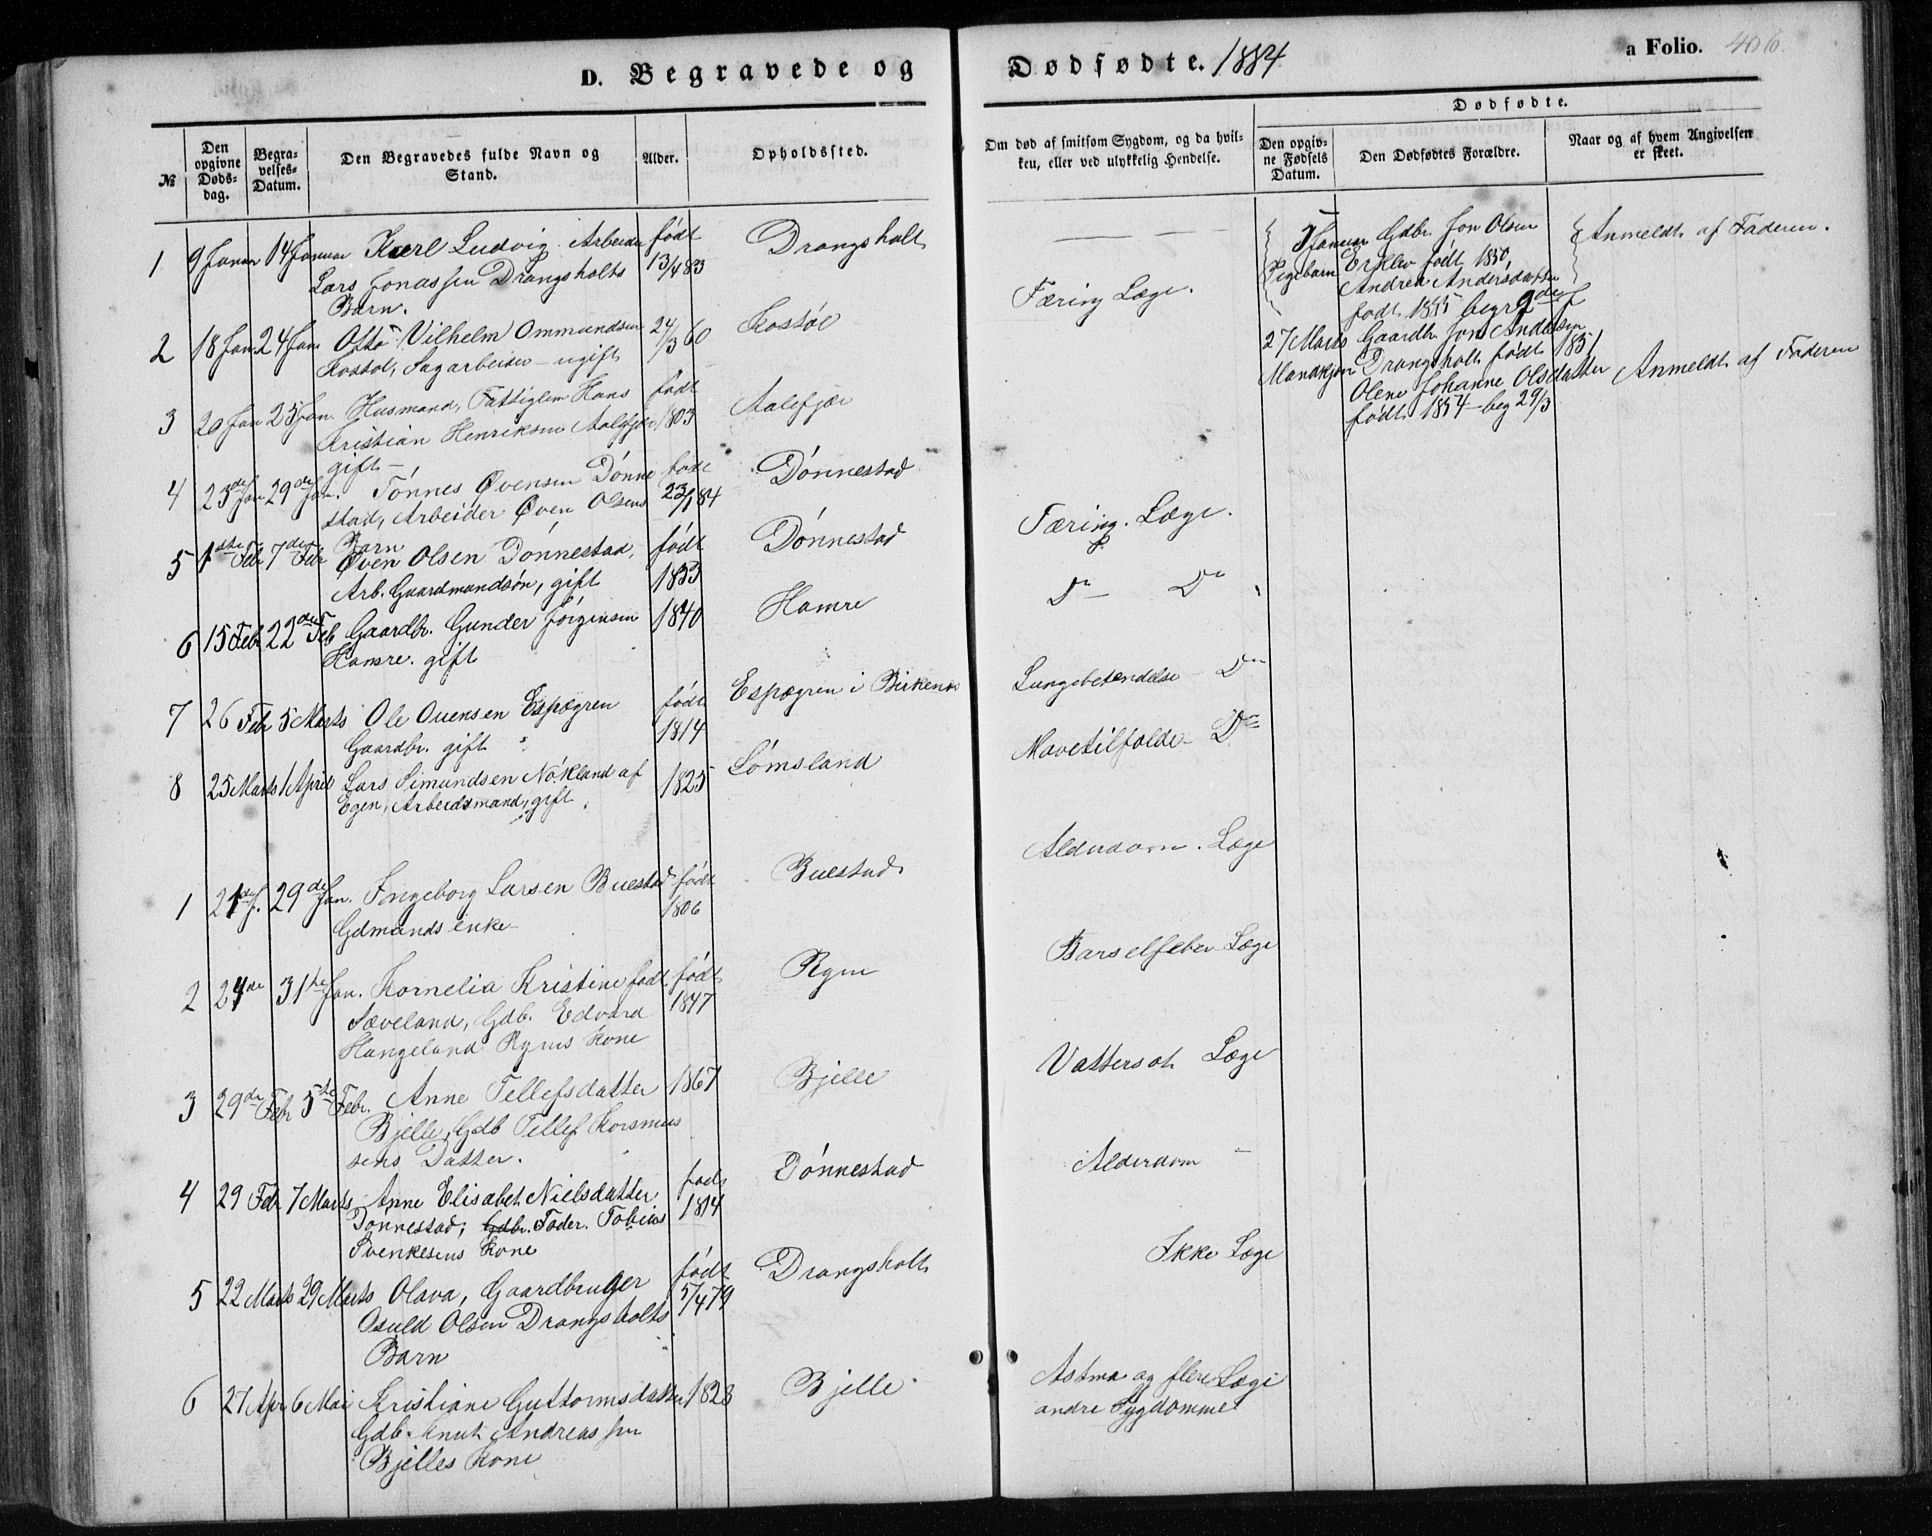 D. Begravede og Dødfødte. 1884
a Folio. 406.
№
Den opgivne Døds-dag.
Begra-velses-Datum.
Den Begravedes fulde Navn og Stand.
Alder.
Opholdssted.
Om død af smitsom Sygdom, og da hvil-ken, eller ved ulykkelig Hendelse.
Dødfødte.
Den opgiv-ne Fødsels Datum.
Den Dødfødtes Forældre.
Naar og af hvem Angivelsen er skeet.
1 9 Januar 14 Januar Karl Ludvig Arbeider født Drangsholt
Lars Jonassen Drangsholts 13/4 83
Barn.
2 18 Jan 24 Jan Otto Vilhelm Ommundsen 24/3 60 Kostøl Tæring Læge.
Kostøl, Sagarbeider – ugift
3 20 Jan 25 Jan. Husmand, Fattiglem Hans født Aalefjær
Kristian Henriksen Aalefjær 1803
gift –
4 23de Jan 29de Jan. Tönnes Øvensen Dönne født Dönnestad
stad, Arbeider Øven Olsens 23/1 84
Barn
5 1ste Febr 7de Febr Øven Olsen Dönnestad, født Dönnestad Tæring. Læge.
Arb. Gaardmandsøn, gift 1853
6 15 Febr 22de Feb Gaardbr. Gunder Jörgensen 1840 Hamre Do Do
Hamre. gift
7 26 Febr 5 Marts Ole Ouensen Espegren født Espegren i Birkenes Lungebetændelse Do
Gaardbr. gift 1814
8 25 Marts 1 April Lars Simundsen Nökland af 1825 Lömsland Mavetilfælde Do
Egen, Arbeidsmand, gift
1 21de J. 29de Jan. Ingeborg Larsen Buestad født Buestad Alderdom. Læge
Gdmands enke 1806
2 24de 31te Jan. Kornelia Kristine født født Ryen Barselfeber Læge
Sæveland, Gdb. Edvard 1847
Haugeland Ryens Kone
3 29de Febr 5te Febr. Anne Tellefsdatter 1867 Bjelle Vattersot Læge
Bjelle, Gdb Tellef Korsmus
sens Datter.
4 29 Febr 7 Marts Anne Elisabet Nielsdatter født Dönnestad Alderdom –
Dönnestad, Gdbr. Föder. Tobias 1814
Svenkesens Kone
5 22 Marts 29 Marts Olava, Gaardbruger født Drangsholt Ikke Læge
Osuld Olsen Drangsholts 5/4 79
Barn
6 27 Apr 6 Mai Kristiane Guttormsdatter 1828 Bjelle Astma og flere Læge
Gdb. Knut Andreassen andre Sygdomme
Bjelles Kone
Januar Gdbr. Jon Olsen Anmeldt af Faderen.
Pigebarn Erkleo født 1850,
Andrea Andersdatter
født 1855 begr 9de J
27 Marts Gaardbr. Jon Andersen
Mandkjøn Drangsholt født 1851
Olene Johanne Olsdatter Anmeldt af Faderen
født 1854 – beg 29/3